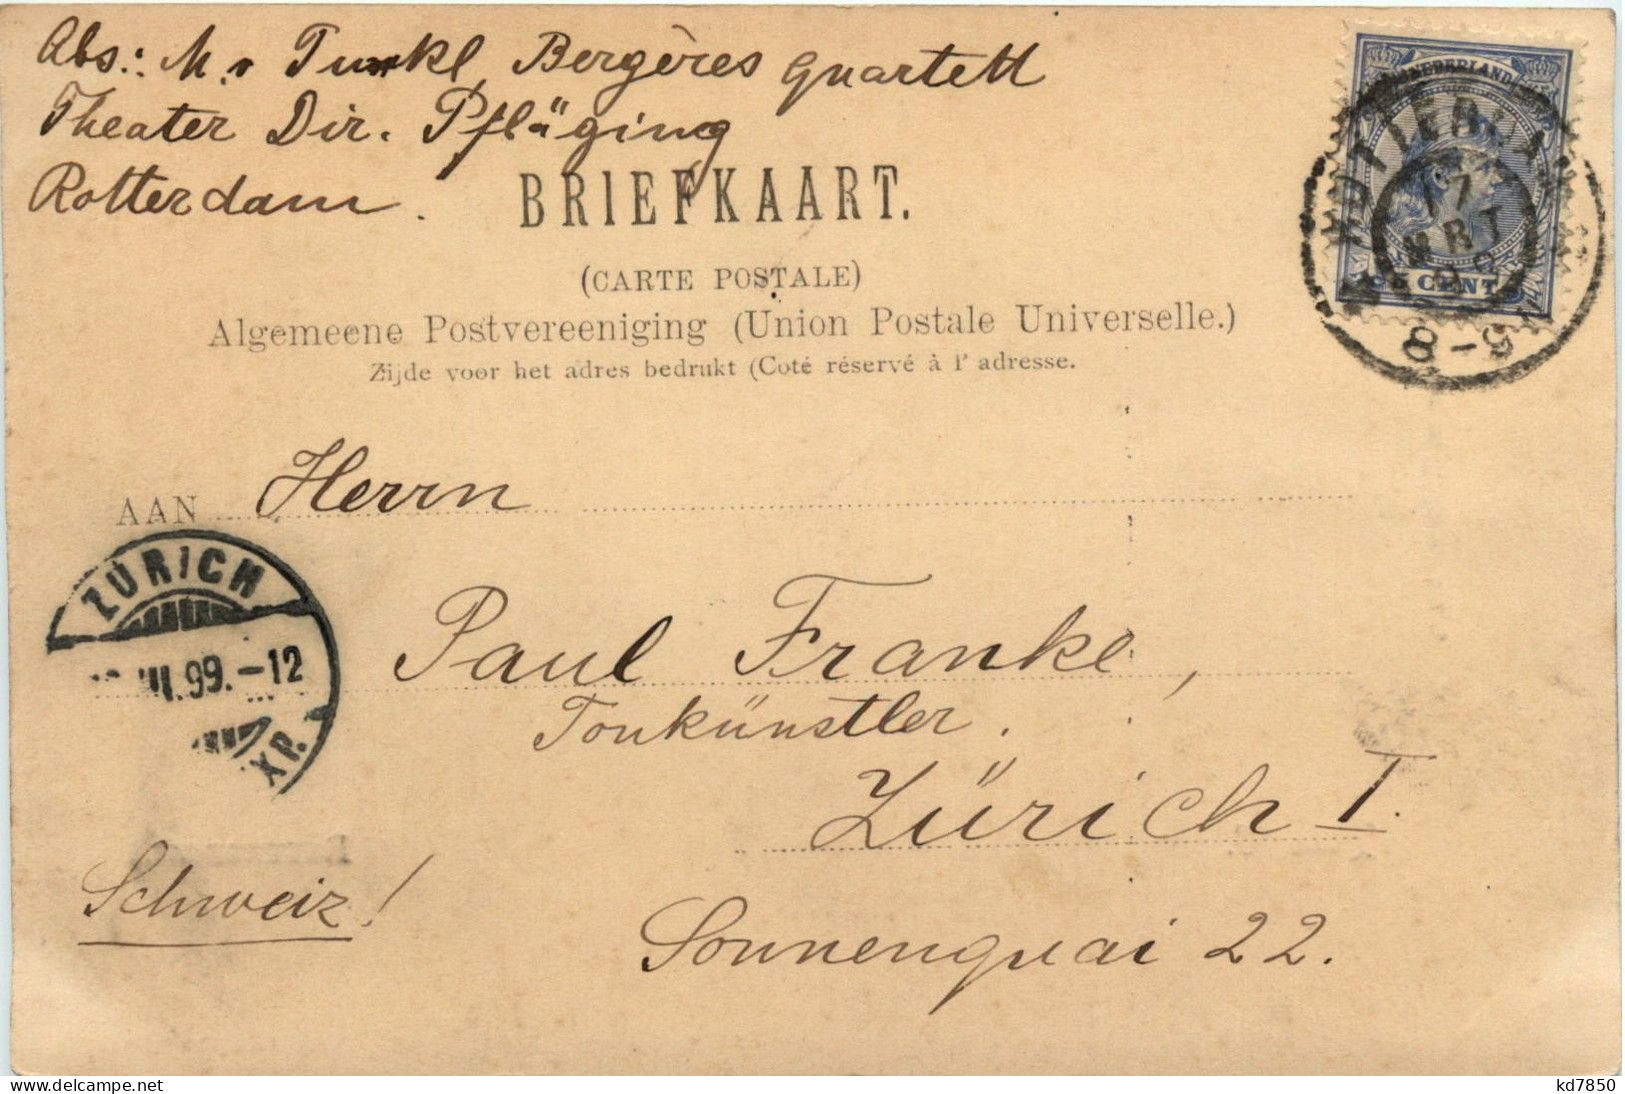 Abs.: M. v Tunkl, Bergères Quartett
Theater Dir. Pfläging
Rotterdam.
BRIEFKAART.
(CARTE POSTALE)
Algemeene Postvereeniging (Union Postale Universelle.)
Zijde voor het adres bedrukt (Coté réservé à l' adresse.
NEDERLAND
ROTTERDAM
17
MRT
99
8-9
CENT
AAN Herrn
ZÜRICH
III.99.-12
XP.
Paul Franke,
Tonkünstler.
Zürich I.
Schweiz!
Sonnenquai 22.
kd7850